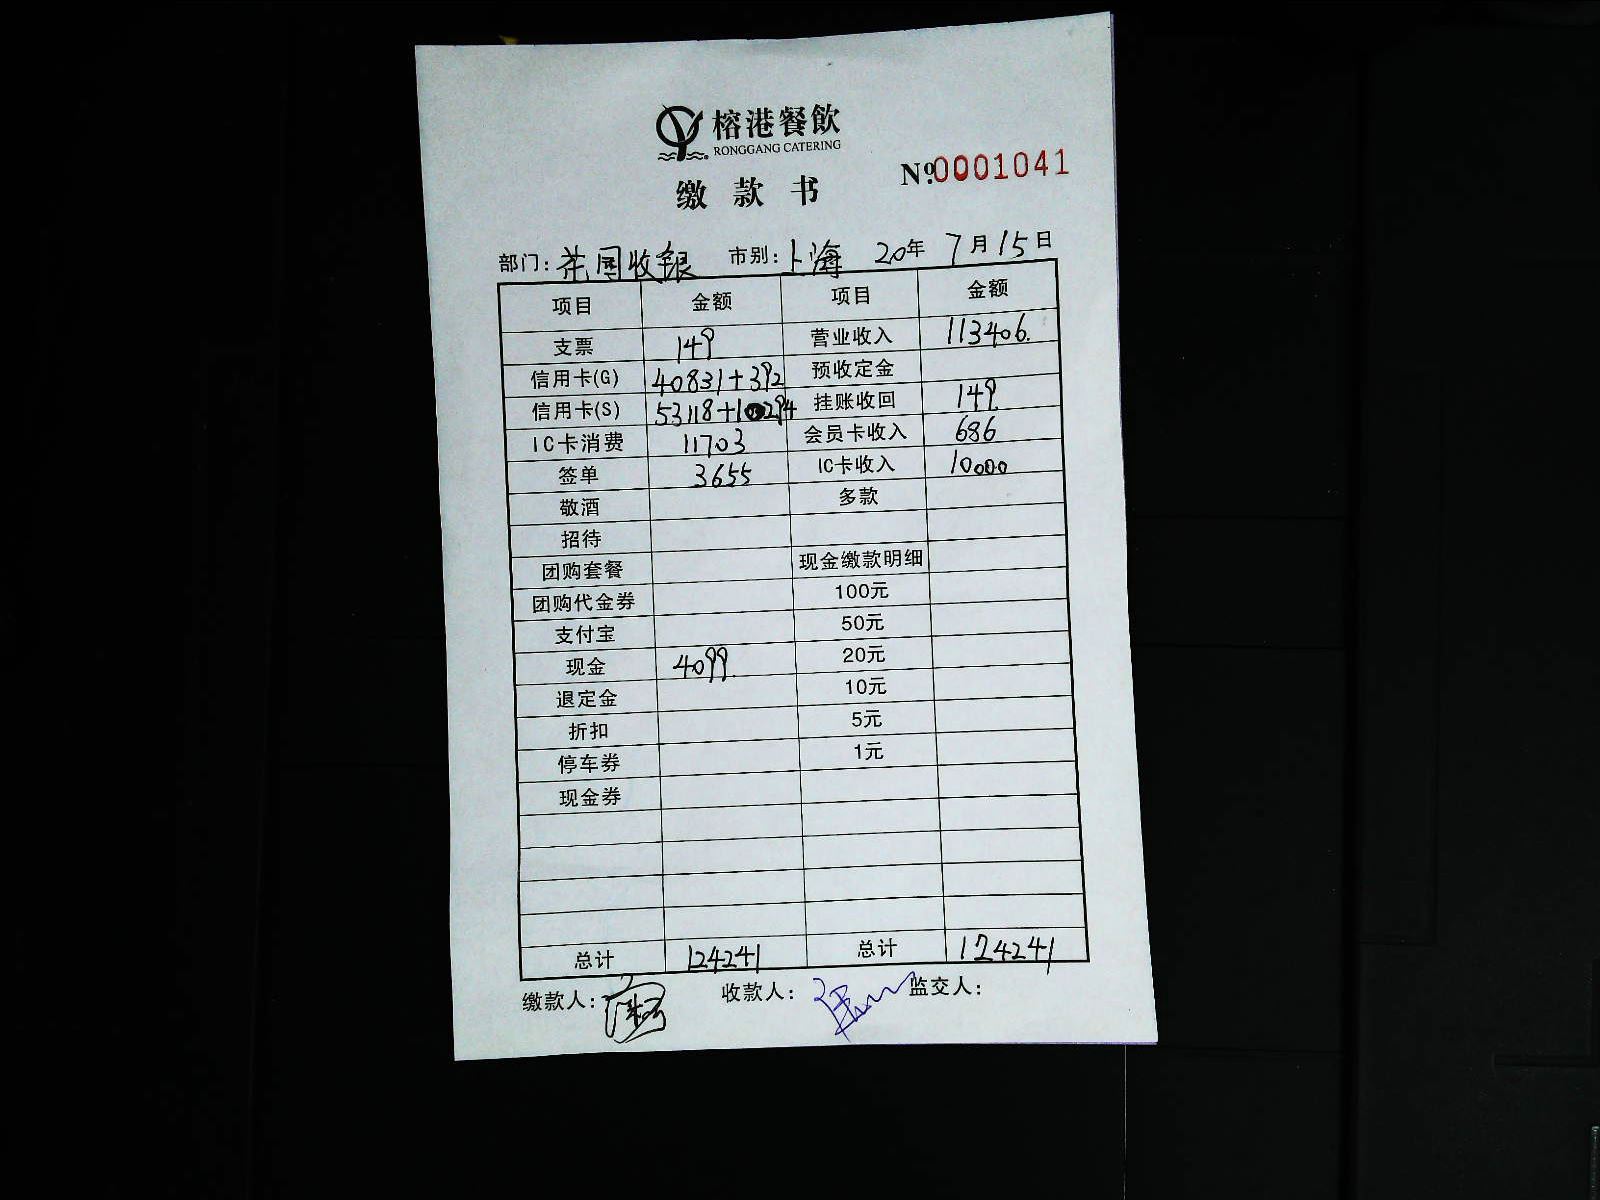 榕港餐飲
RONGGANG CATERING
缴款书
Nº.0001041
部门: 收银 市别: 上海 20年 7月15日
项目 金额 项目 金额
支票 149 营业收入 113406.
信用卡(G) 40831+392 预收定金
信用卡(S) 53118+10294 挂账收回 149.
IC卡消费 11703 会员卡收入 686
签单 3655 IC卡收入 10000
敬酒 多款
招待
团购套餐 现金缴款明细
团购代金券 100元
支付宝 50元
现金 4099. 20元
退定金 10元
折扣 5元
停车券 1元
现金券
总计 124241 总计 124241
缴款人: 收款人: 监交人: